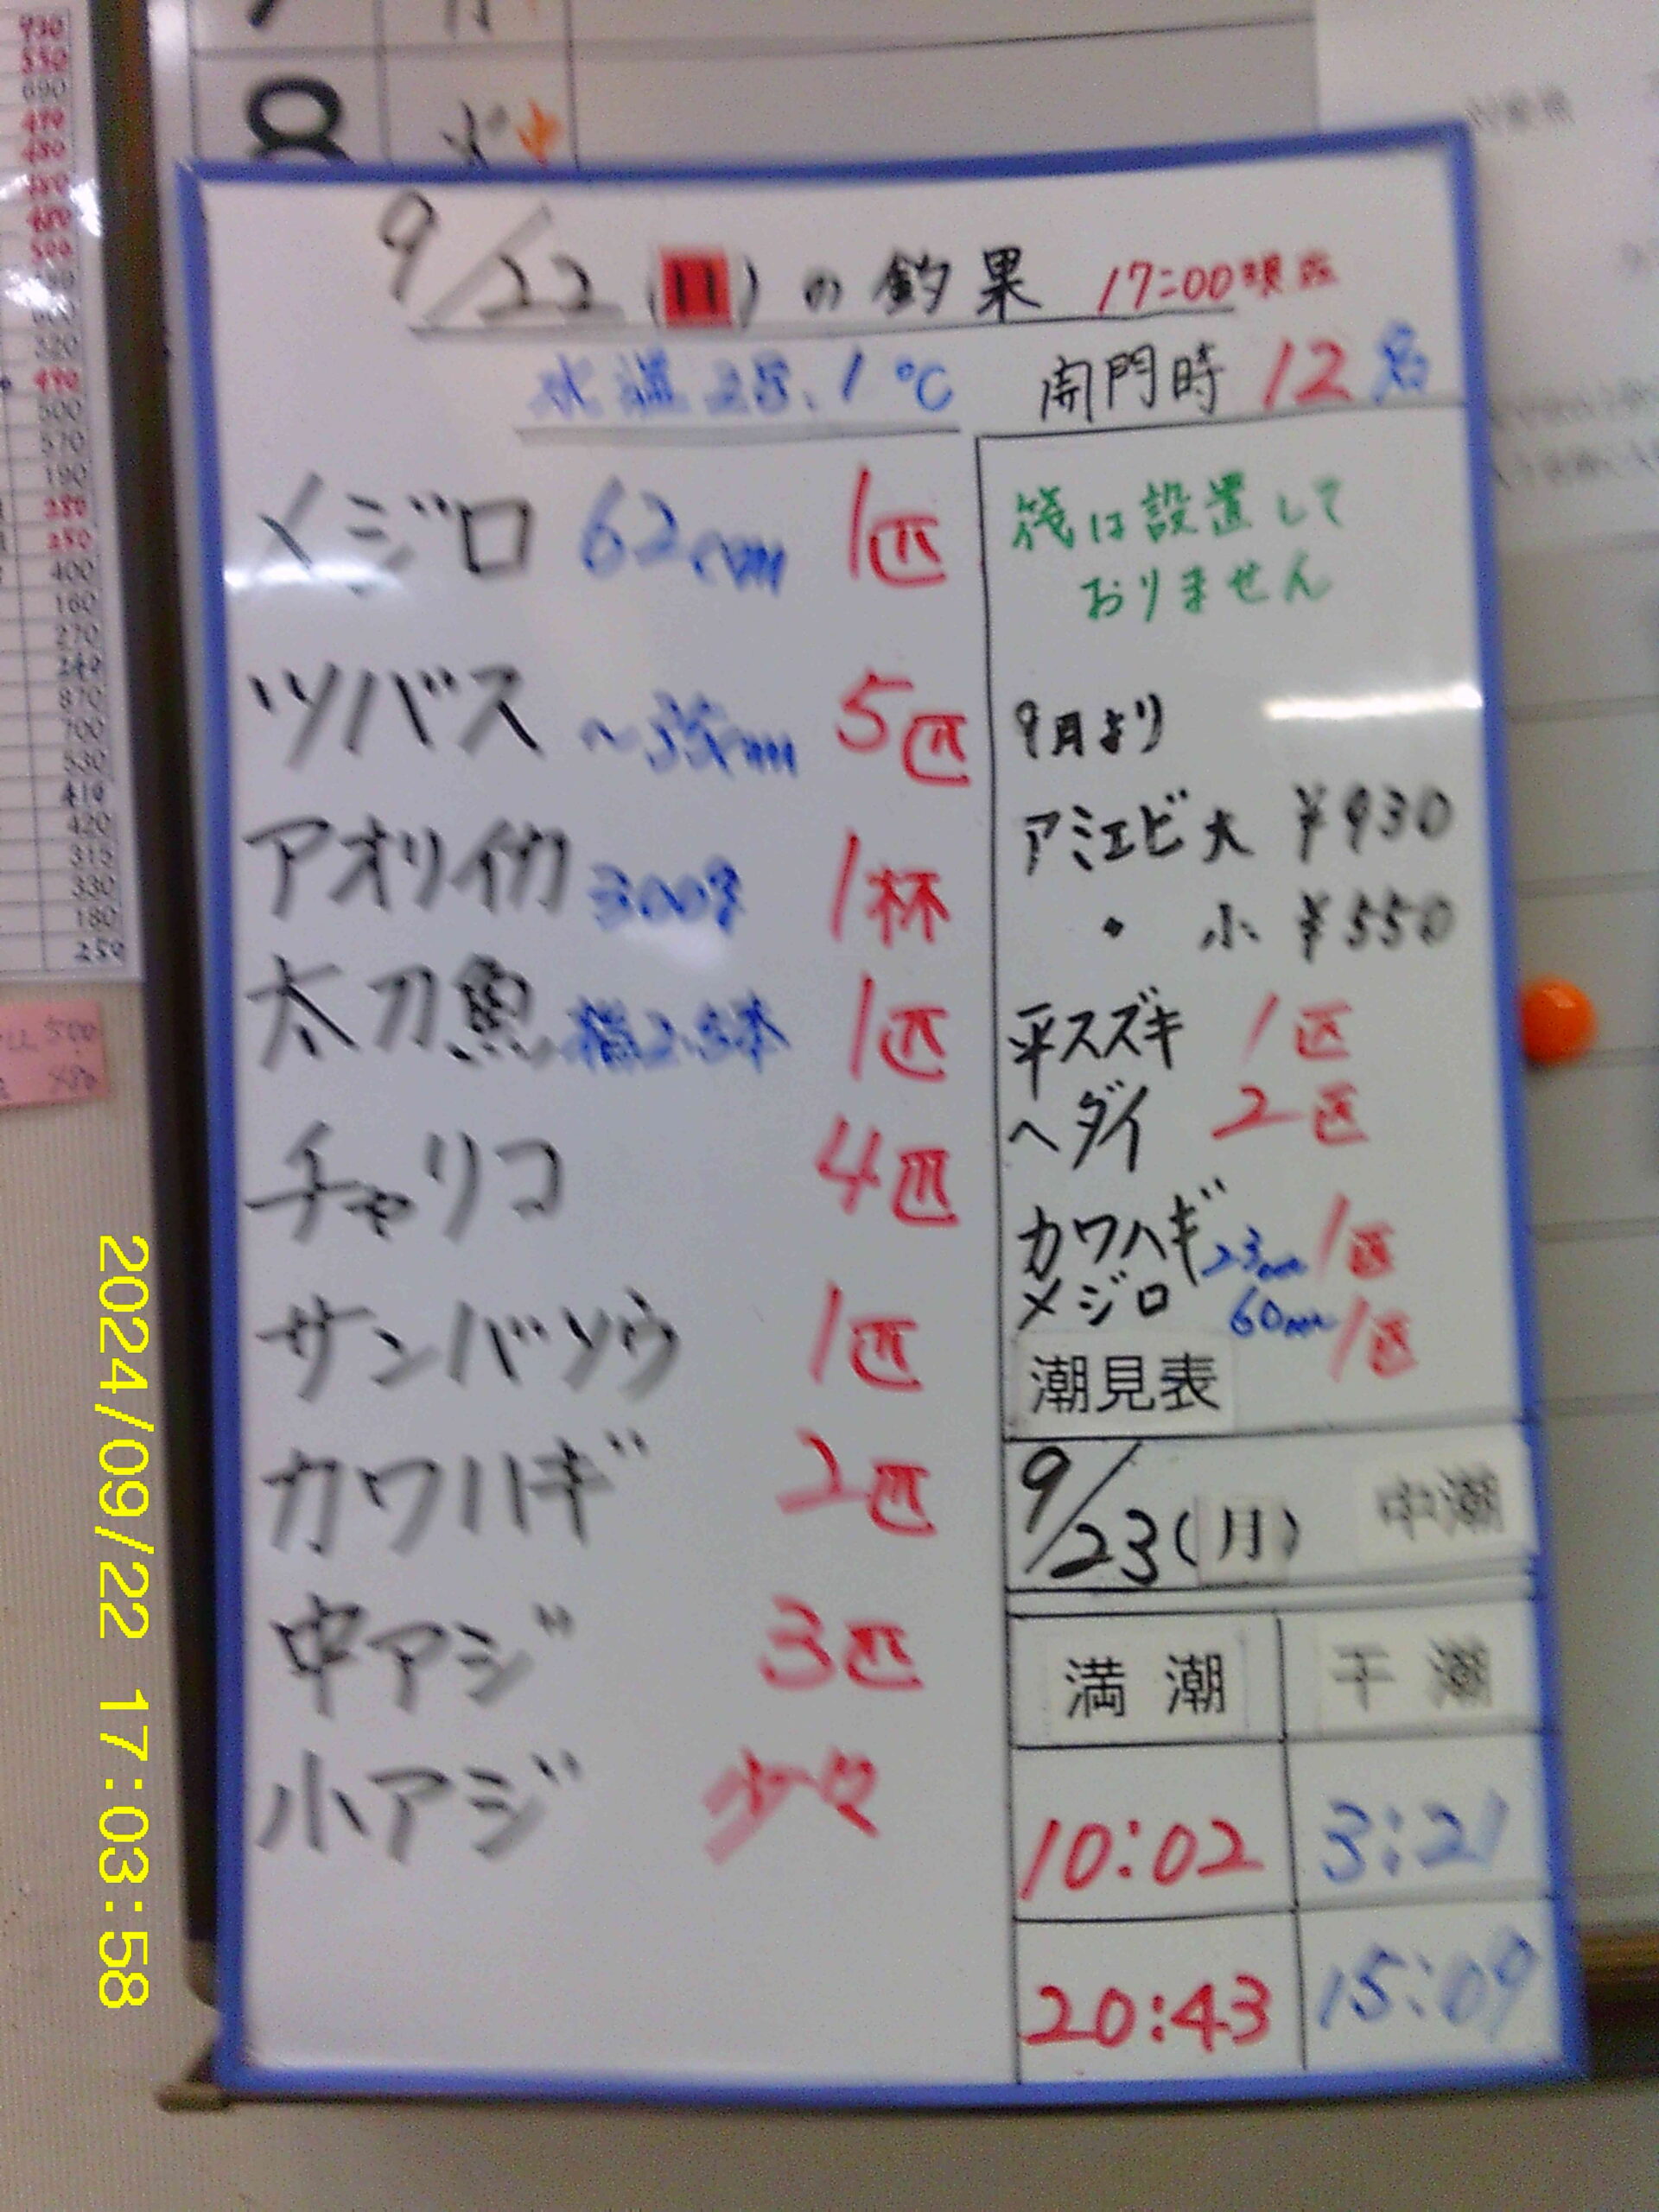 9/22(日)の釣果 17:00現在
水温28.1℃ 開門時 12名
メジロ 62cm 1匹
ツバス ~35cm 5匹
アオリイカ 300g 1杯
太刀魚 指2.5本 1匹
チャリコ 4匹
サンバソウ 1匹
カワハギ 2匹
中アジ 3匹
小アジ 少々
筏は設置して
おりません
9月より
アミエビ大 ¥930
〃 小 ¥550
平スズキ 1匹
ヘダイ 2匹
カワハギ 23cm 1匹
メジロ 60cm 1匹
潮見表
9/23(月) 中潮
満潮 干潮
10:02 3:21
20:43 15:09
2024/09/22 17:03:58
8
930
550
690
320
490
500
570
190
280
250
400
160
270
240
870
700
530
410
420
315
330
180
250
500
480